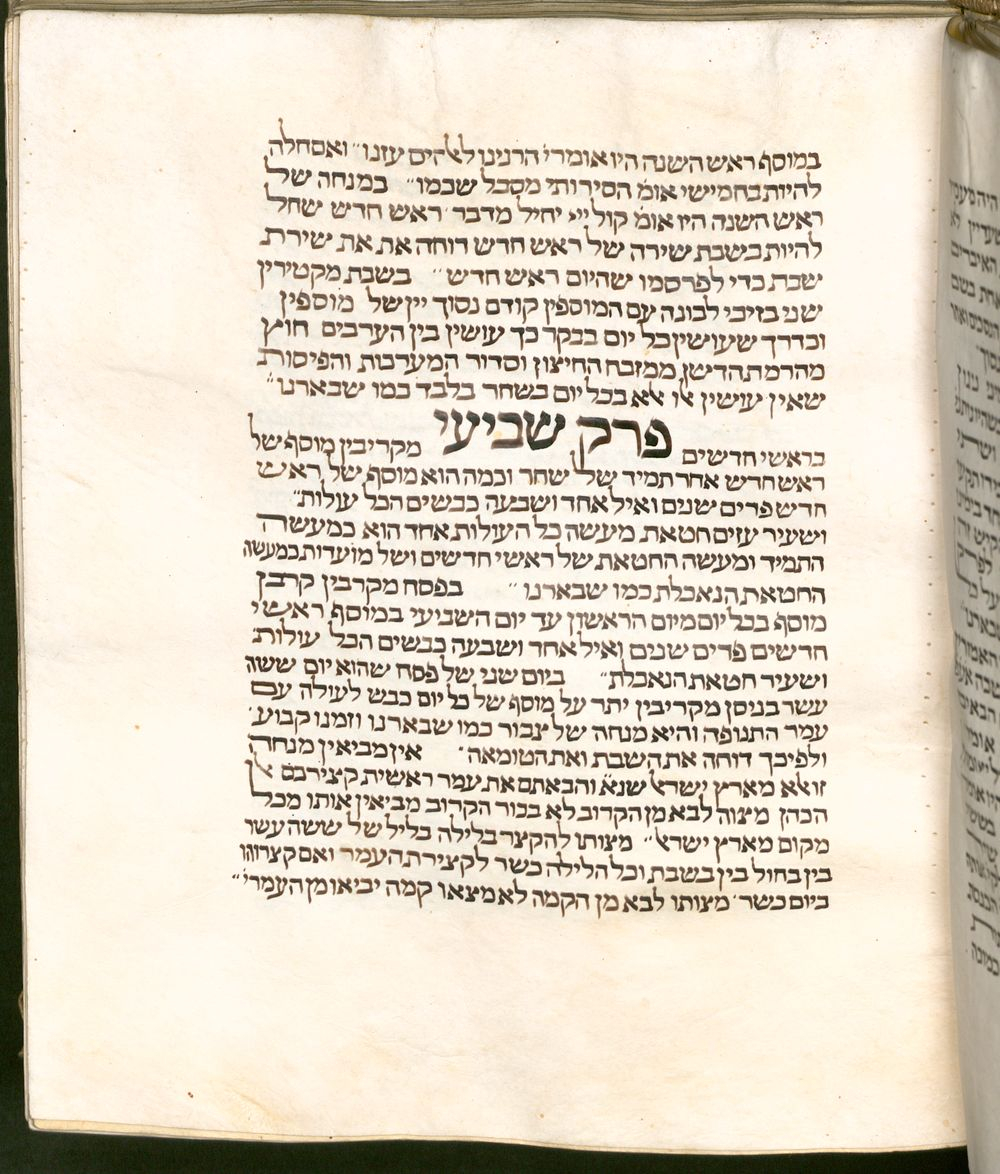 במוסף ראש השנה היו אומרי׳ הרנינו לאלהים עוזנו״ ואם חלה
להיות בחמישי אומ׳ הסירותי מסבל שכמו״ במנחה של
ראש השנה היו אומ׳ קול ייי יחיל מדבר׳ ראש חדש שחל
להיות בשבת שירה של ראש חדש דוחה את את שירת
שבת כדי לפרסמו שהיום ראש חדש״ בשבת מקטירין
שני בזיכי לבונה עם המוספין קודם נסוך יין של מוספין
וכדרך שעושין בכל יום בבקר כך עושין בין הערבים חוץ
מהרמת הדשן ממזבח החיצון וסדור המערכות והפיסות
שאין עושין אלו אלא בכל יום בשחר בלבד כמו שבארנו״
פרק שביעי
בראשי חדשים מקריבין מוסף של
ראש חדש אחר תמיד של שחר וכמה הוא מוסף של ראש
חדש פרים שנים ואיל אחד ושבעה כבשים הכל עולות״
ושעיר עזים חטאת מעשה כל העולות אחד הוא כמעשה
התמיד ומעשה החטאת של ראשי חדשים ושל מועדות כמעשה
החטאת הנאכלת כמו שבארנו״ בפסח מקרבין קרבן
מוסף בכל יום מיום הראשון עד יום השביעי כמוסף ראשי
חדשים פרים שנים ואיל אחד ושבעה כבשים הכל עולות
ושעיר חטאת הנאכלת״ ביום שני של פסח שהוא יום ששה
עשר בניסן מקריבין יתר על מוסף של כל יום כבש לעולה עם
עמר התנופה והיא מנחה של צבור כמו שבארנו וזמנו קבוע׳
ולפיכך דוחה את השבת ואת הטומאה׳ אין מביאין מנחה
זו אלא מארץ ישראל שנא׳ והבאתם את עמר ראשית קצירכם אל
הכהן מצוה לבא מן הקרוב לא בכור הקרוב מביאין אותו מכל
מקום מארץ ישראל״ מצותו להקצר בלילה בליל של ששה עשר
בין בחול בין בשבת וכל הלילה כשר לקצירת העמר ואם קצרוהו
ביום כשר׳ מצותו לבא מן הקמה לא מצאו קמה יביאו מן העמרי׳״